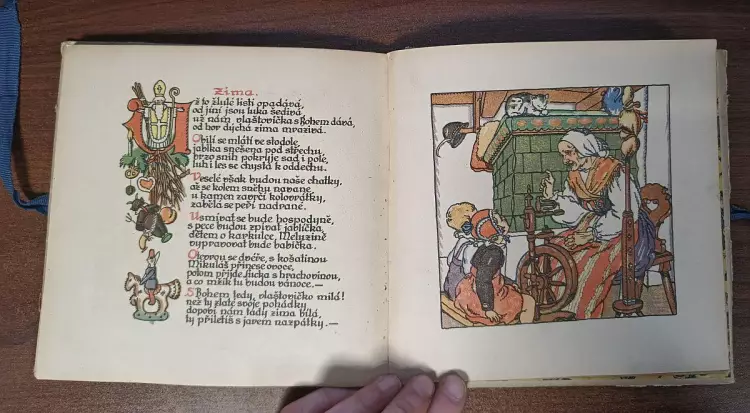 Zima.
ž to žluté listí opadává,
od jíní jsou luka šedivá,
už nám vlaštovička s Bohem dává,
od hor dýchá zima mrazivá.
Obilí se mlátí ve stodole,
jablka snešena pod střechu,
brzo sníh pokryje sad i pole,
luh i les se chystá k oddechu.
Veselé však budou naše chatky,
až se kolem sněhu navane,
u kamen zavrčí kolovrátky,
zabělá se peří nadrané.
Usmívat se bude hospodyně,
s pece budou zpívat jablíčka,
dětem o karkulce, Meluzině
vypravovat bude babička.
Otevrou se dvéře, s košatinou
Mikuláš přinese ovoce,
potom přijde Lucka s hrachovinou,
a co mžik tu budou vánoce.—
S Bohem tedy, vlaštovičko milá!
než ty zlaté svoje pohádky
dopoví nám tady zima bílá,
ty přiletíš s jarem nazpátky.—